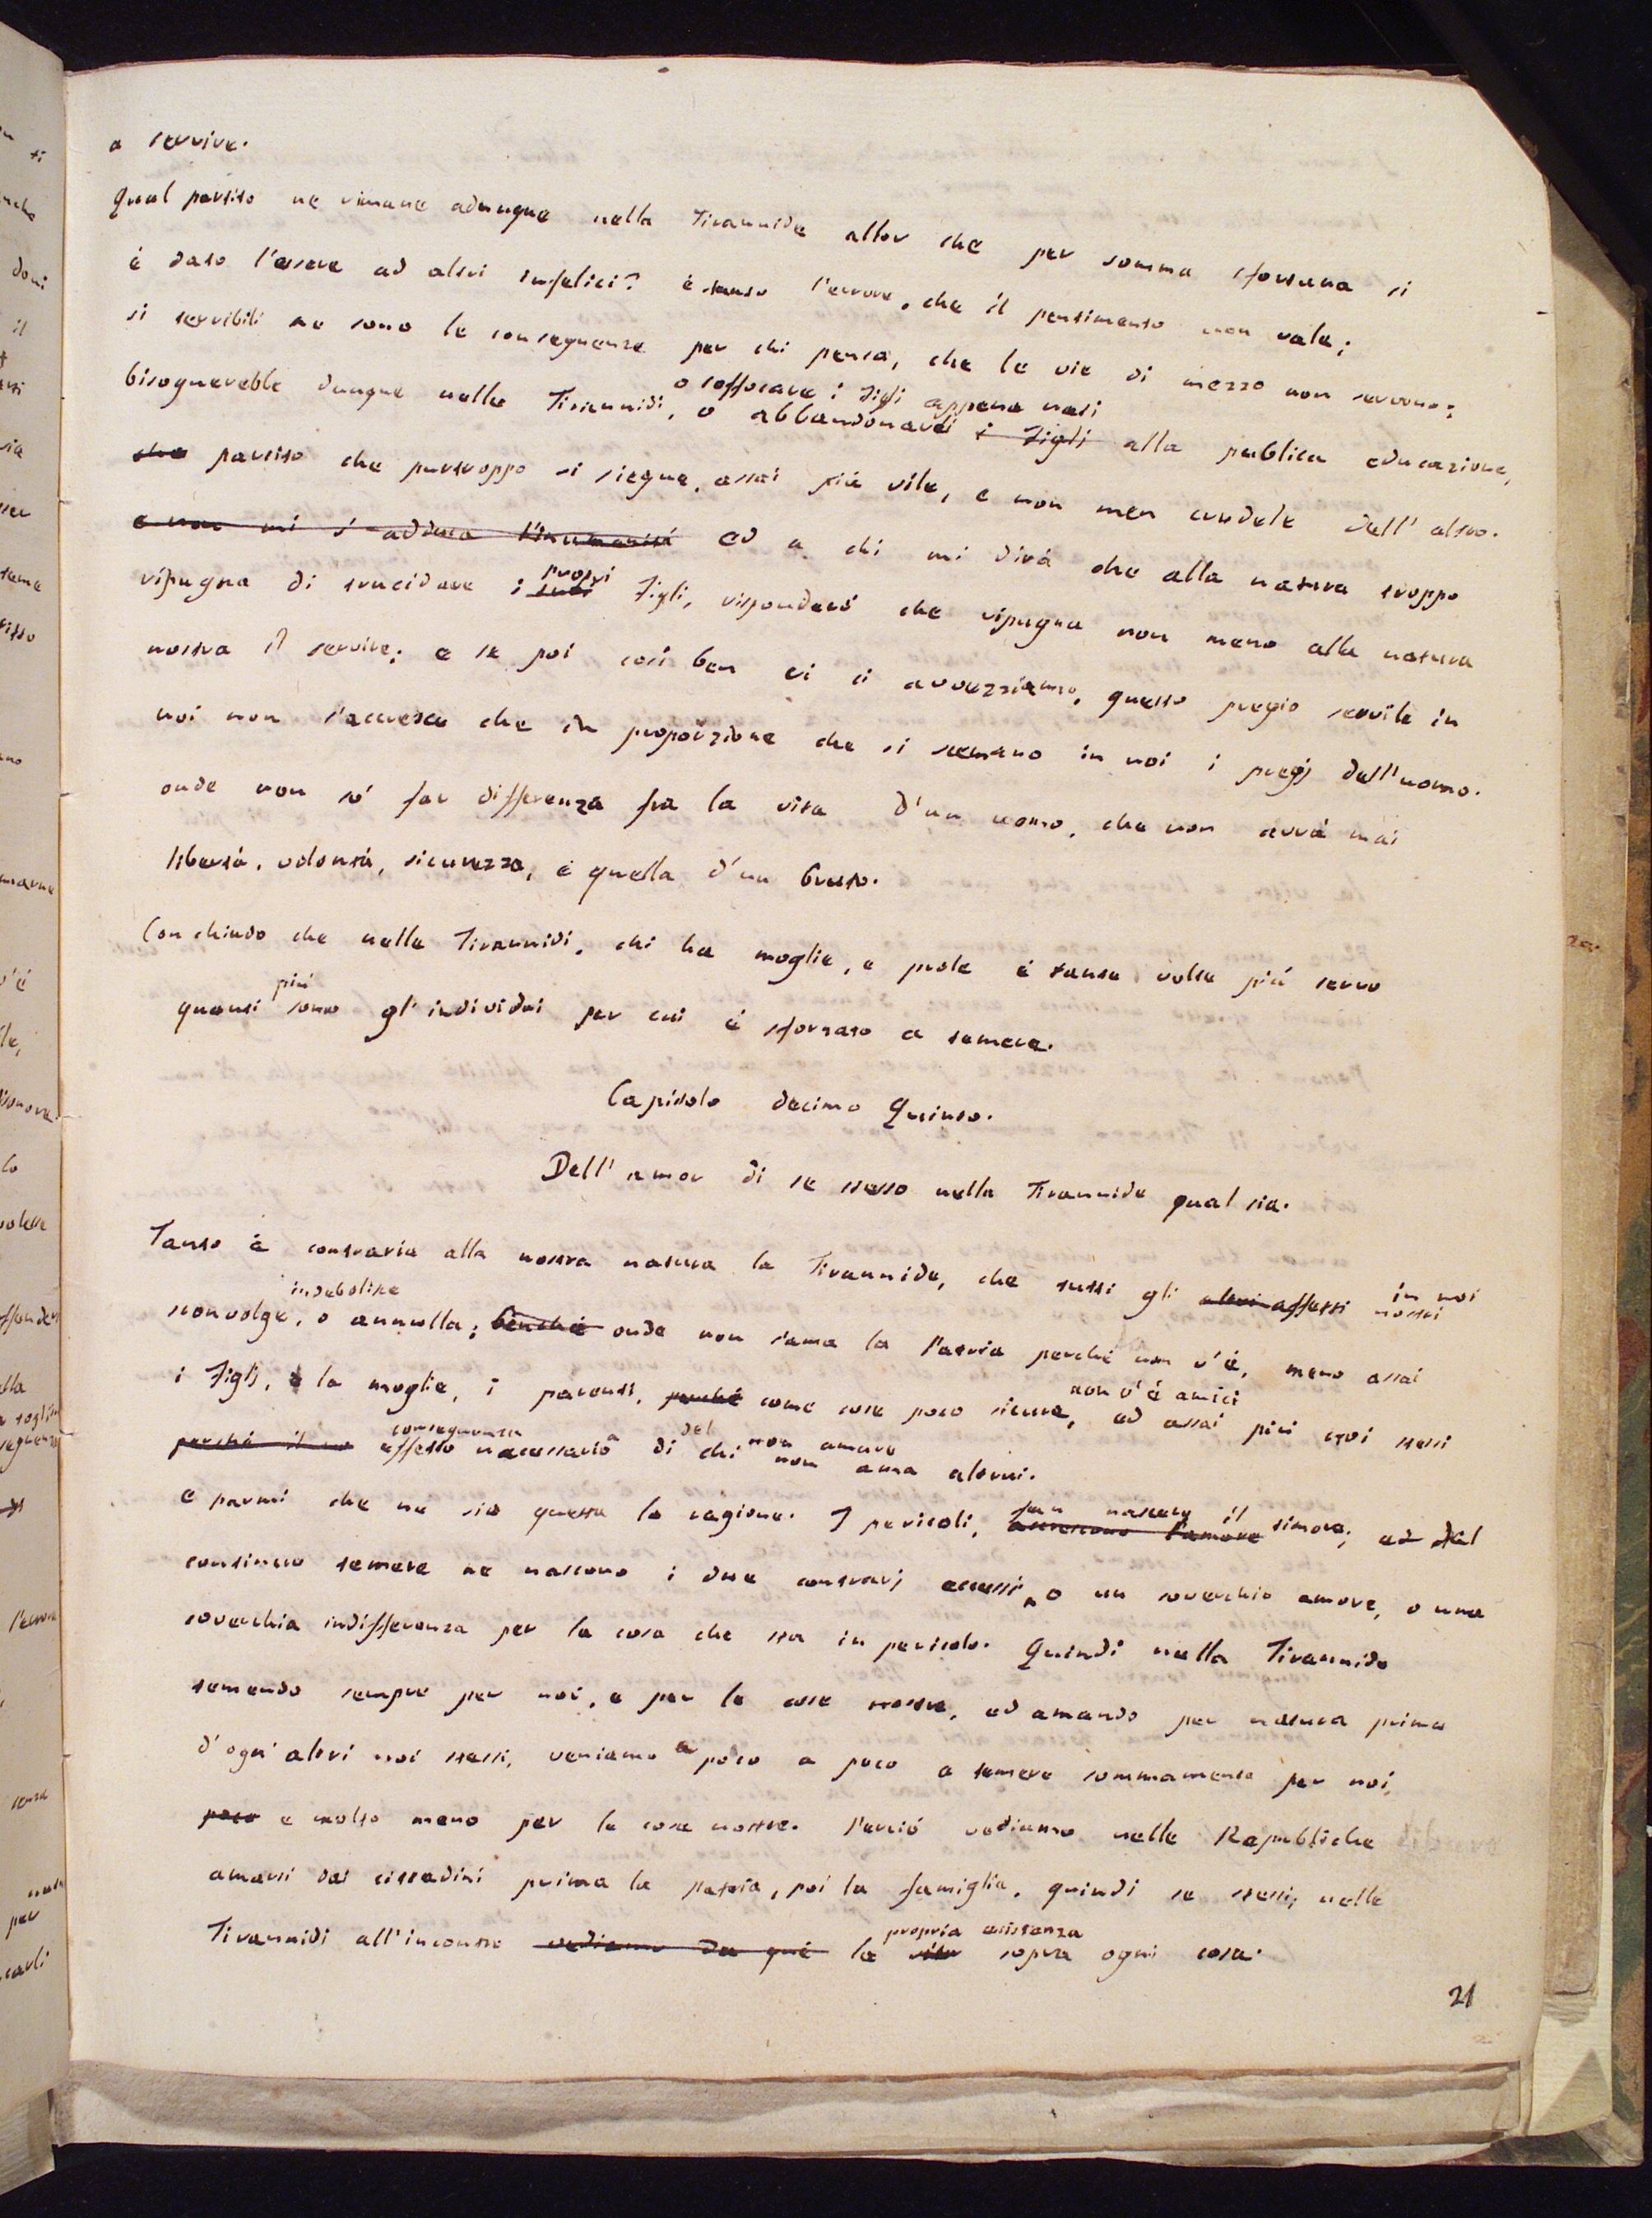 a servire.
Qual partito ne rimane adunque nella Tirannide allor che per somma sfortuna si
è dato l'essere ad altri infelici? è tanto l'errore, che il pentimento non vale;
si terribili ne sono le conseguenze per chi pensa, che le vie di mezzo non servono;
o soffocare i figli appena nati
bisognerebbe dunque nelle Tirannidi, o abbandonarli i figli alla publica educazione,
che partito che purtroppo si siegue, assai più vile, e non men crudele dell'altro.
e non mi s'adduca l'inumanità ed a chi mi dirà che alla natura troppo
propri
ripugna di trucidare i suoi figli, risponderò che ripugna non meno alla natura
nostra il servire; e se poi così ben ci ci avvezziamo, questo pregio servile in
noi non s'accresce che in proporzione che si scemano in noi i pregj dell'uomo.
onde non so' far differenza fra la vita d'un uomo, che non avrà mai
libertà, volontà, sicurezza, e quella d'un bruto.
Conchiudo che nelle Tirannidi, chi ha moglie, e prole è tante volte più servo
più
quanti sono gl'individui per cui è sforzato a temere.
Capitolo decimo Quinto.
Dell'amor di se stesso nella Tirannide qual sia.
Tanto è contraria alla nostra natura la Tirannide, che tutti gli altri affetti nostri
in noi
indebolisce
sconvolge, o annulla; benchè onde non s'ama la Patria perchè non v'è, meno assai
i Figlj, e la moglie, i parenti, perchè come cose poco sicure, ed assai più noi stessi
non v'è amici
conseguenza del non amare
perchè effetto necessario a di chi non ama altrui.
e parmi che ne sia questa la cagione. I pericoli, accrescono l'amore timore; ed dal
fan nascere il
continuo temere ne nascono i due contrarj eccessi, o un soverchio amore, o una
soverchia indifferenza per la cosa che sta in pericolo. Quindi nella Tirannide
temendo sempre per noi, e per le cose nostre, ed amando per natura prima
d'ogn'altri noi stessi, veniamo a poco a poco a temere sommamente per noi,
poco e molto meno per le cose nostre. Perciò vediamo nelle Republiche
amarsi dai cittadini prima la patria, poi la famiglia, quindi se stessi; nelle
propria esistenza
Tirannidi all'incontro vediamo da quì la vita sopra ogni cosa.
21